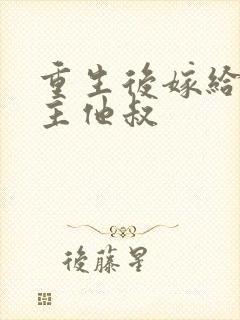 重生後嫁給
主他叔
後藤星